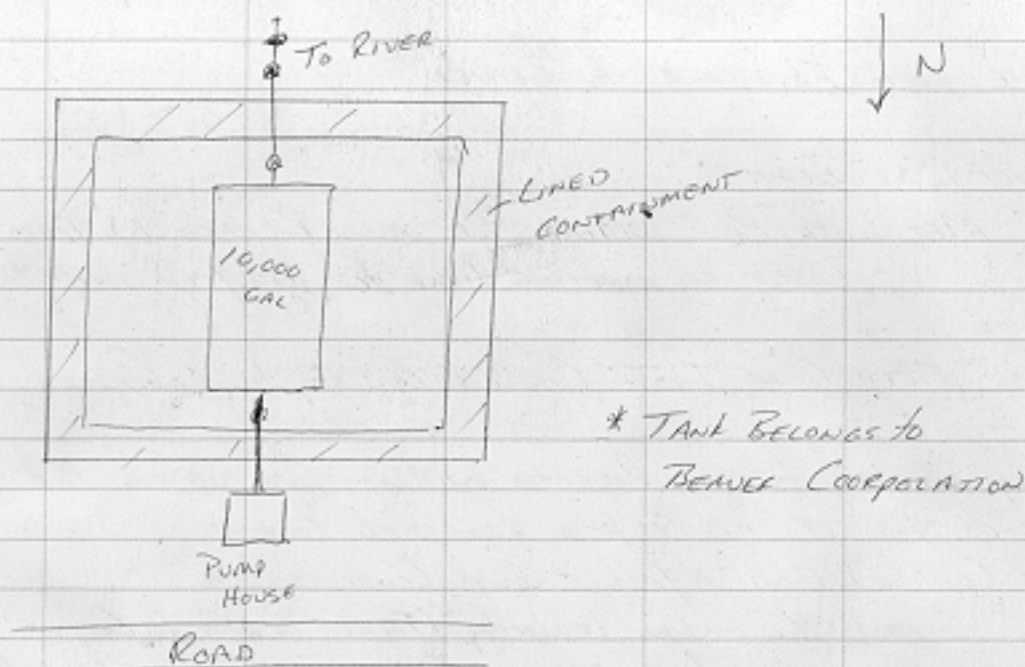 To RIVER
N
LINED
CONTAINMENT
10,000
GAL
* TANK BELONGS to
BEAVER COORPORATION
PUMP
HOUSE
ROAD